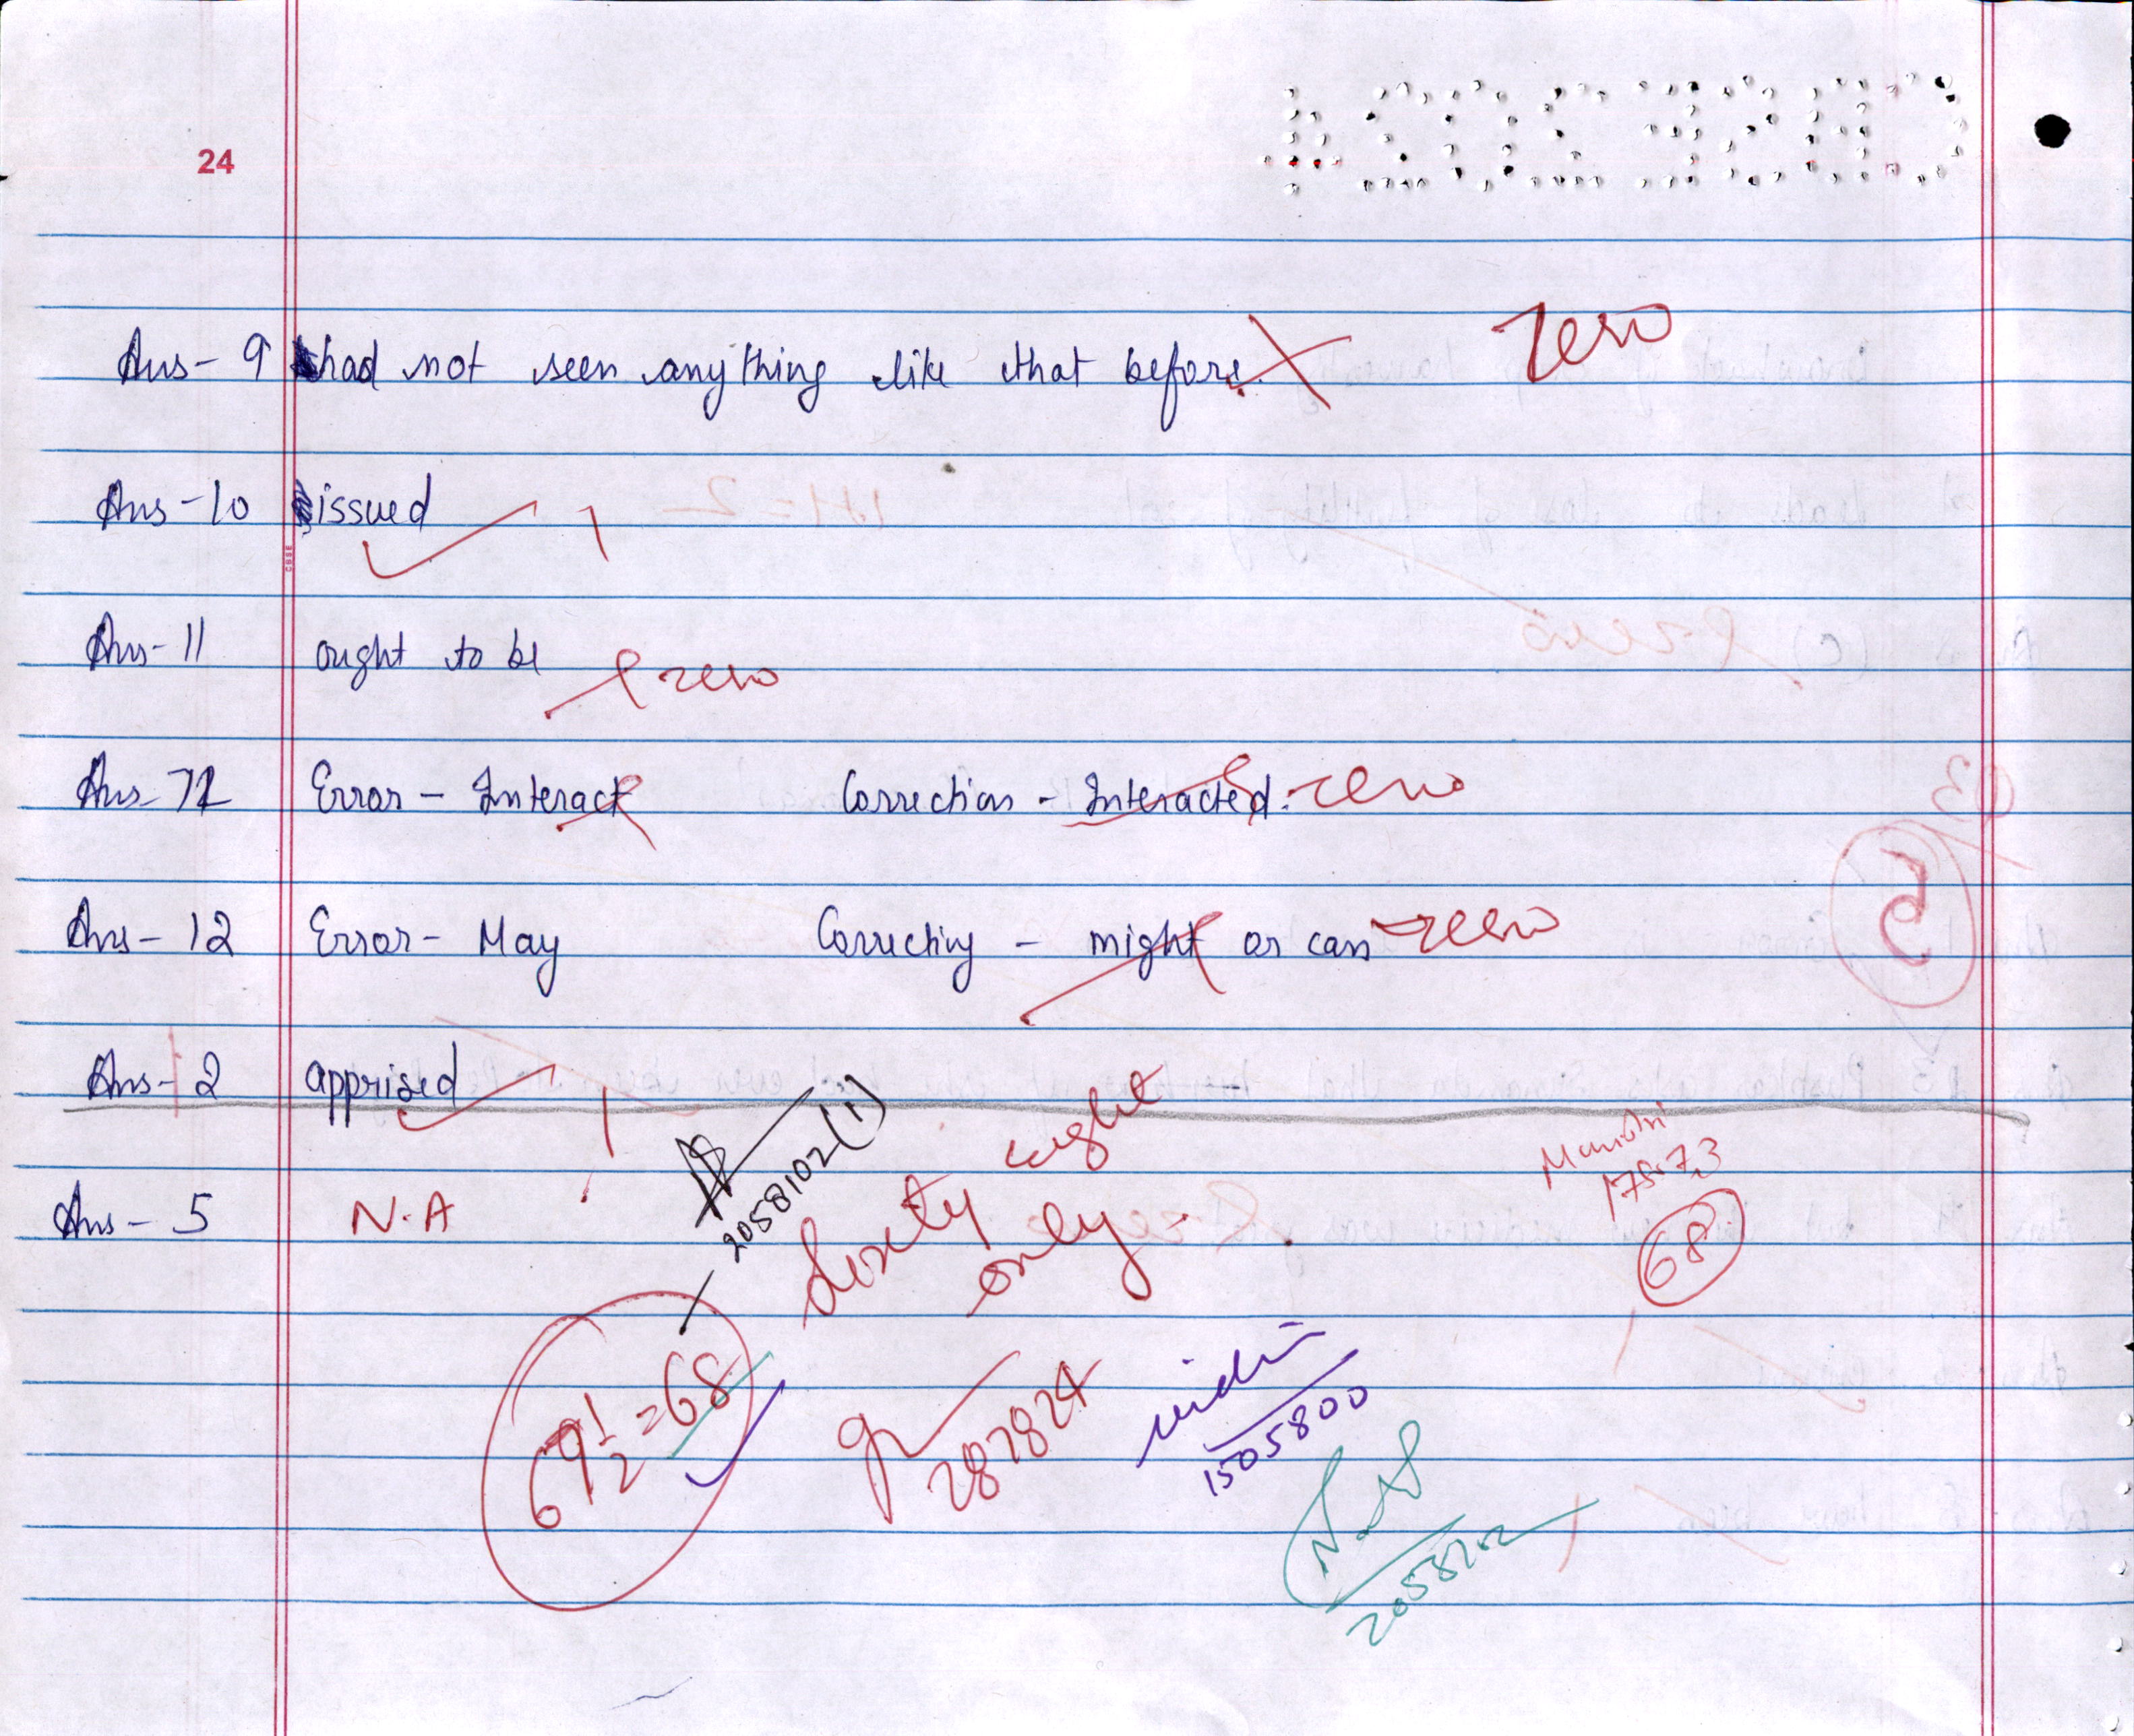 24
Ans- 9 had not seen anything like that before. zero
Ans-10 issued 1
CBSE
Ans- 11 ought to be zero
Ans- Error - Interact Correction - Interacted. zero
Ans- 12 Error- May Correcting - might or can zero
Ans- 2 apprised 1
Ans- 5 N.A
2058102(1)
Sixty eight
only.
68
69 1/2 = 68
287824
1505800